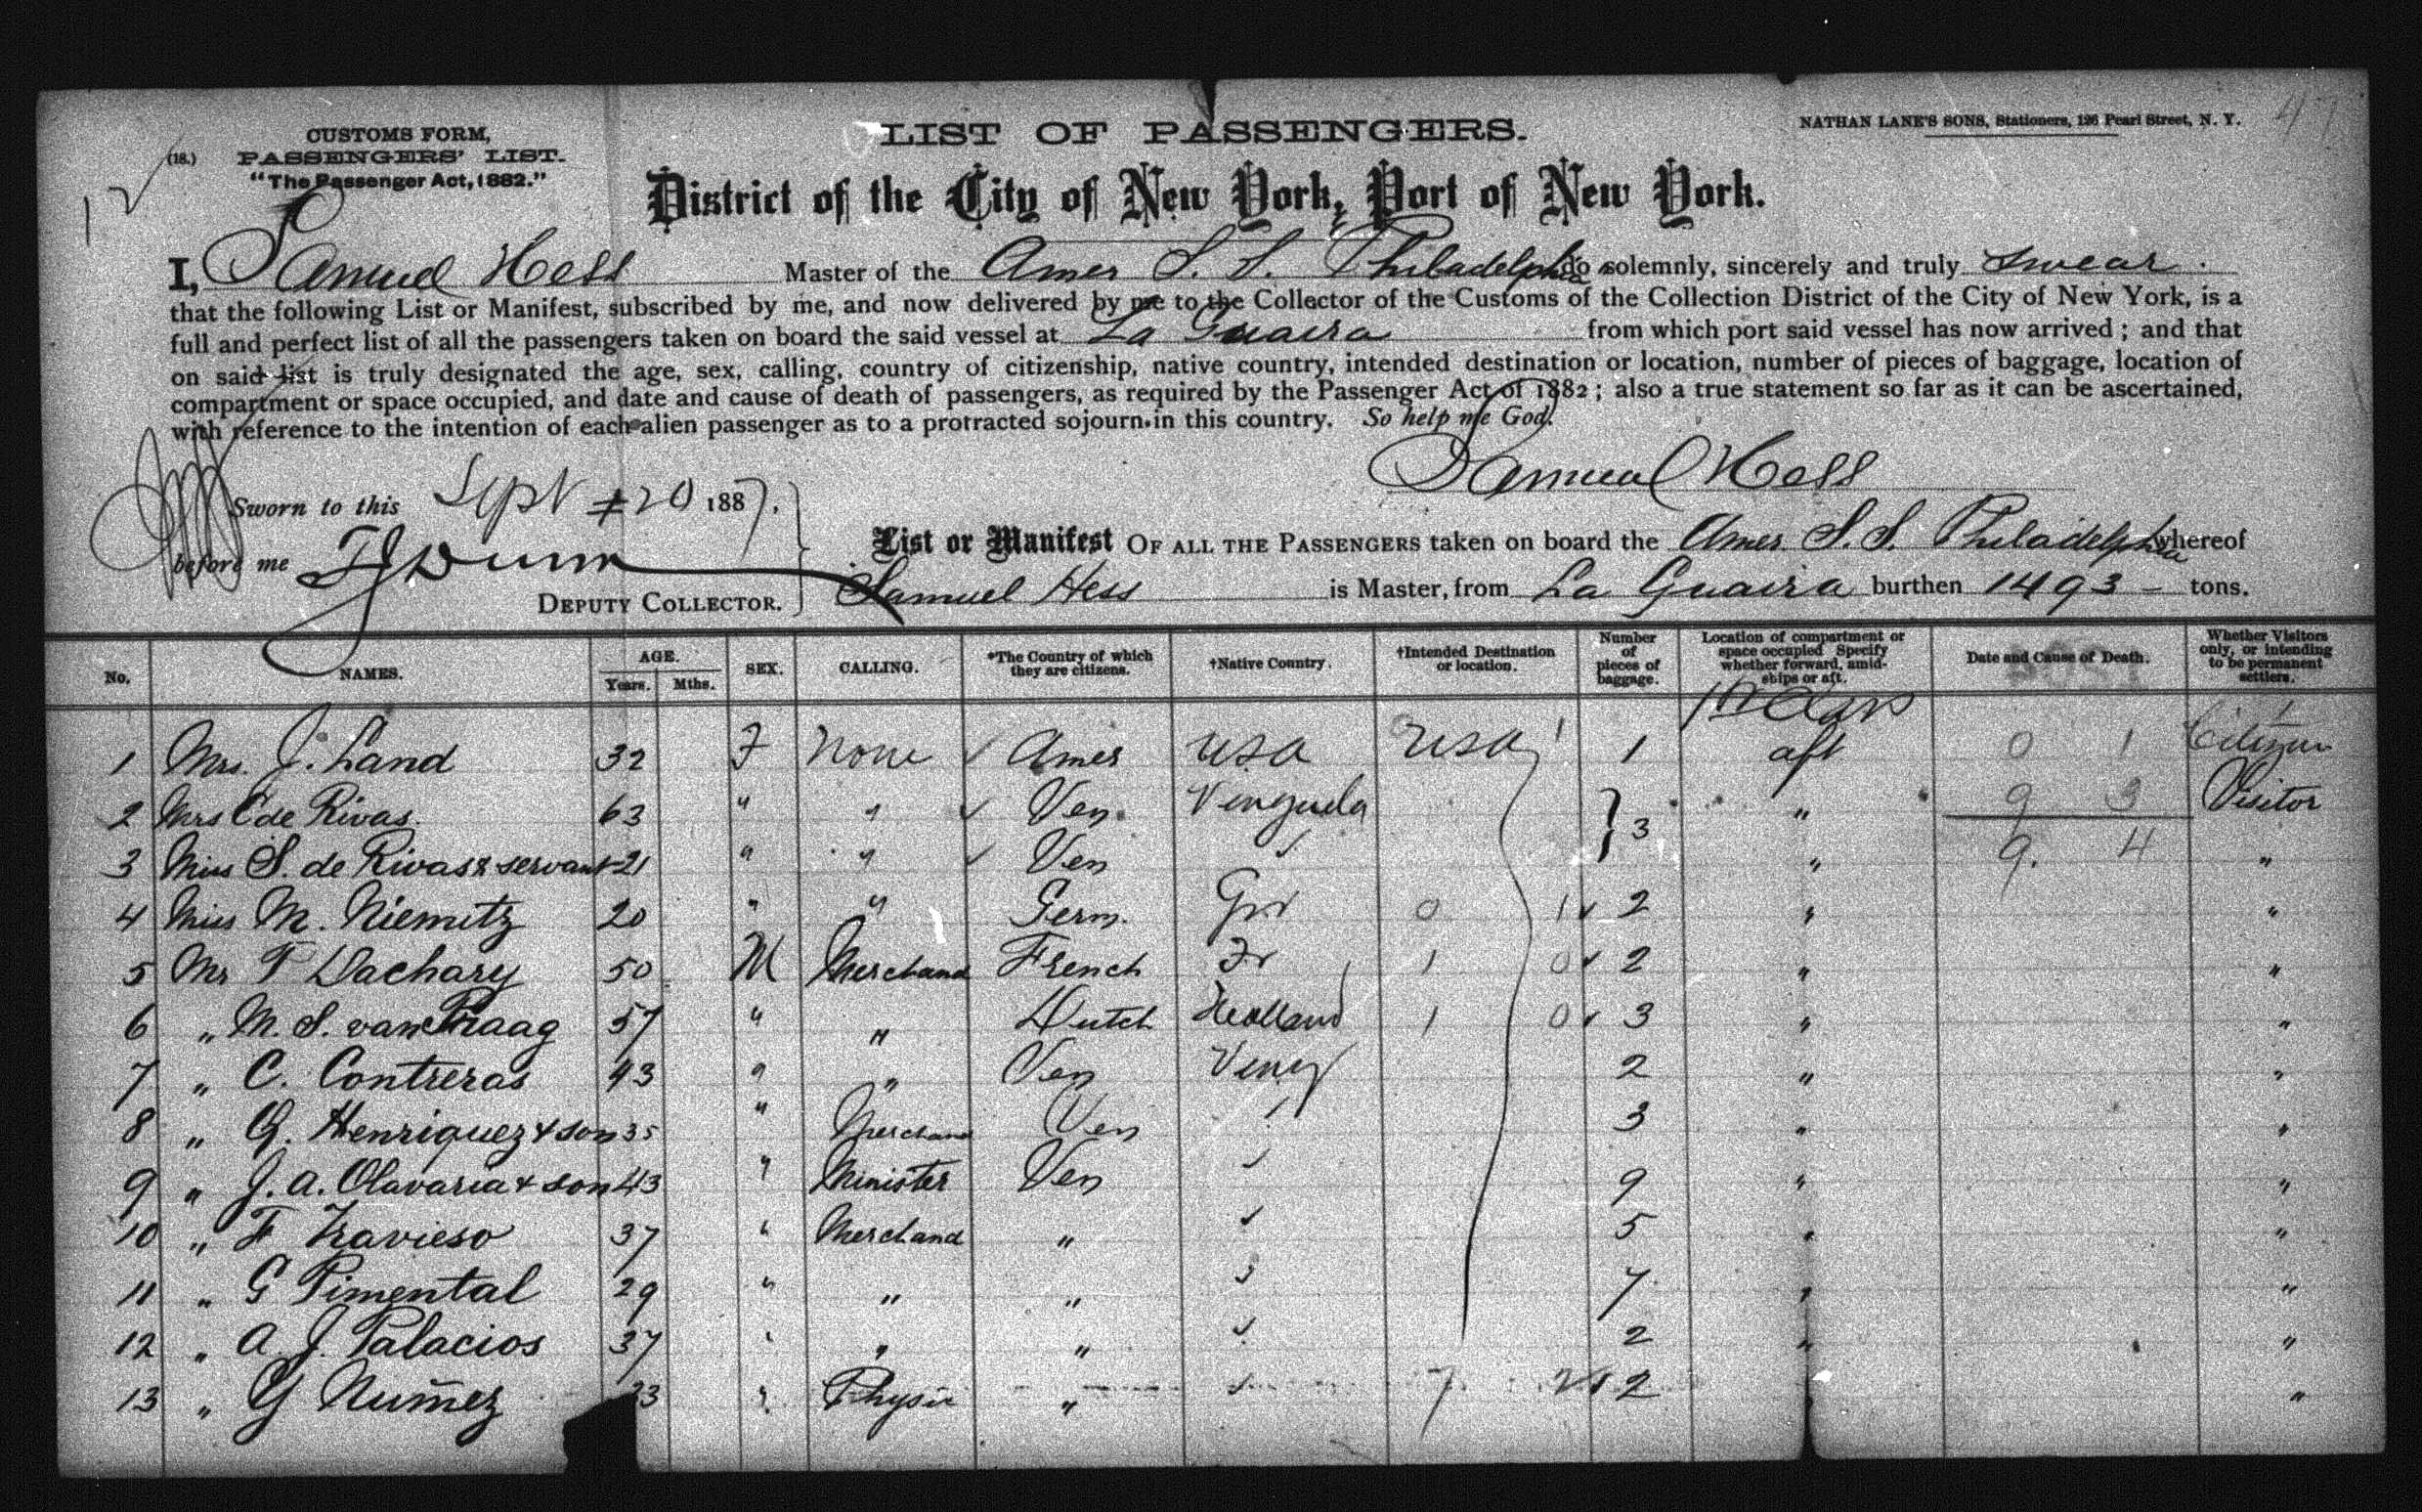 CUSTOMS FORM,
(18.) PASSENGERS' LIST.
"The Passenger Act, 1882."
LIST OF PASSENGERS.
NATHAN LANE'S SONS, Stationers, 126 Pearl Street, N. Y.
District of the City of New York, Port of New York.
I, Samuel Hess Master of the Amer S. S. Philadelphia do solemnly, sincerely and truly swear.
that the following List or Manifest, subscribed by me, and now delivered by me to the Collector of the Customs of the Collection District of the City of New York, is a
full and perfect list of all the passengers taken on board the said vessel at La Guaira from which port said vessel has now arrived; and that
on said list is truly designated the age, sex, calling, country of citizenship, native country, intended destination or location, number of pieces of baggage, location of
compartment or space occupied, and date and cause of death of passengers, as required by the Passenger Act of 1882; also a true statement so far as it can be ascertained,
with reference to the intention of each alien passenger as to a protracted sojourn in this country. So help me God.
Samuel Hess
Sworn to this Sept 20 1887.
before me
DEPUTY COLLECTOR.
List or Manifest OF ALL THE PASSENGERS taken on board the Amer S. S. Philadelphia whereof
Samuel Hess is Master, from La Guaira burthen 1493 - tons.
No. NAMES. AGE. Years. Mths. SEX. CALLING. *The Country of which they are citizens. †Native Country. †Intended Destination or location. Number of pieces of baggage. Location of compartment or space occupied Specify whether forward, amidships or aft. Date and Cause of Death. Whether Visitors only, or intending to be permanent settlers.
1 Mrs. J. Land 32 F None ✓ Amer USA USA 1 1 aft 0 1 Citizen
2 Mrs C de Rivas. 63 " " ✓ Ven. Venezuela } 3 " 9 3 Visitor
3 Miss S. de Rivas & servant 21 " " ✓ Ven ✓ " 9. 4 "
4 Miss M. Niemitz 20 " " Germ. Gr 0 1 ✓ 2 " "
5 Mr T Dachary 50 M Merchand French Fr 1 0 ✓ 2 " "
6 " M. S. van Praag 57 " " Dutch Holland 1 0 ✓ 3 " "
7 " C. Contreras 43 " " Ven Venez 2 " "
8 " G. Henriquez & son 35 " Merchand Ven ✓ 3 " "
9 " J. A. Olavaria & son 43 " Minister Ven ✓ 9 " "
10 " F Travieso 37 " Merchand " ✓ 5 " "
11 " G Pimental 29 " " " ✓ 7 " "
12 " A. J. Palacios 37 " " " ✓ 2 " "
13 " G Nuñez 23 " " ✓ 7 2 ✓ 2 "